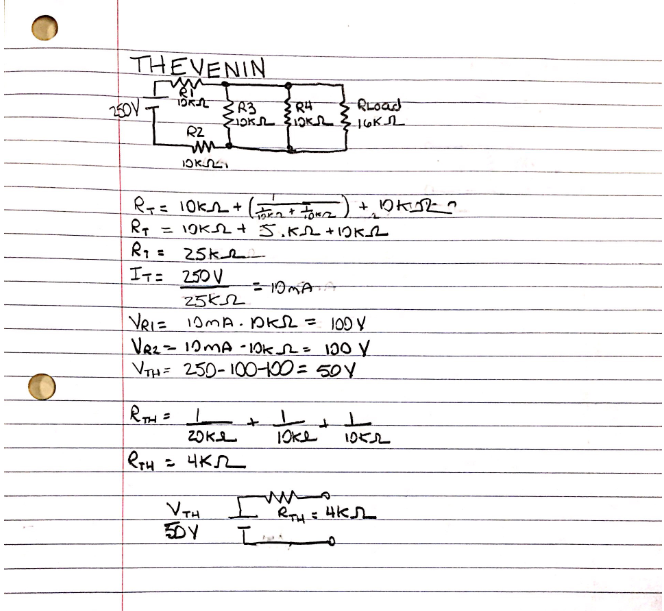 THEVENIN
R1
10KΩ
250V
R3
10KΩ
R4
10KΩ
RLoad
16KΩ
R2
10KΩ
RT = 10KΩ + (1/(1/10KΩ + 1/10KΩ)) + 10KΩ
RT = 10KΩ + 5.KΩ + 10KΩ
RT = 25KΩ
IT = 250V/25KΩ = 10mA
VR1 = 10mA . 10KΩ = 100V
VR2 = 10mA - 10KΩ = 100V
VTH = 250-100-100 = 50V
RTH = 1/20KΩ + 1/10KΩ + 1/10KΩ
RTH = 4KΩ
VTH
50V
RTH = 4KΩ